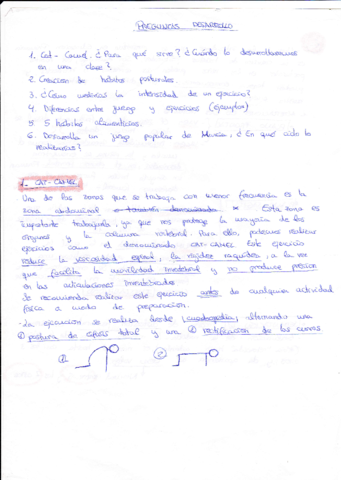 PREGUNTAS DESARROLLO
1. Cat-Camel. ¿Para qué sirve? ¿Cuándo lo desarrollaremos
en una clase?
2. Creación de hábitos posturales.
3. ¿Cómo medirías la intensidad de un ejercicio?
4. Diferencias entre juego y ejercicios (ejemplos)
5. 5 hábitos alimenticios.
6. Desarrolla un juego popular de Murcia, ¿En qué ciclo lo
realizarías?
1- CAT-CAMEL
Una de las zonas que se trabaja con menor frecuencia es la
zona abdominal * Esta zona es
importante trabajarla, ya que nos protege la mayoría de los
órganos y la columna vertebral. Para ello, podemos realizar
ejercicios como el denominado CAT-CAMEL Este ejercicio
reduce la viscosidad espinal, la rigidez raquídea, a la vez
que facilita la movilidad intervertebral y no produce presión
en las articulaciones intervertebrales
Se recomienda realizar este ejercicio antes de cualquier actividad
física a modo de preparación.
- La ejecución se realiza desde cuadrupedia, alternando una
① postura de cifosis total y una ② rectificación de las curvas
① ②